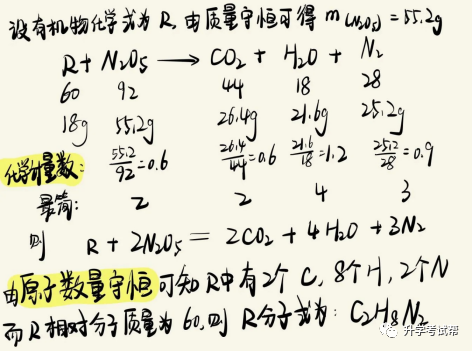 设有机物化学式为R,由质量守恒可得 m(N₂O₅) = 55.2g
R + N₂O₅ ⟶ CO₂ + H₂O + N₂
60 92 44 18 28
18g 55.2g 26.4g 21.6g 25.2g
化学计量数: 55.2/92=0.6 26.4/44=0.6 21.6/18=1.2 25.2/28=0.9
最简: 2 2 4 3
则 R + 2N₂O₅ = 2CO₂ + 4H₂O + 3N₂
由原子数量守恒可知R中有2个C,8个H,2个N
而R相对分子质量为60,则 R分子式为: C₂H₈N₂
升学考试帮